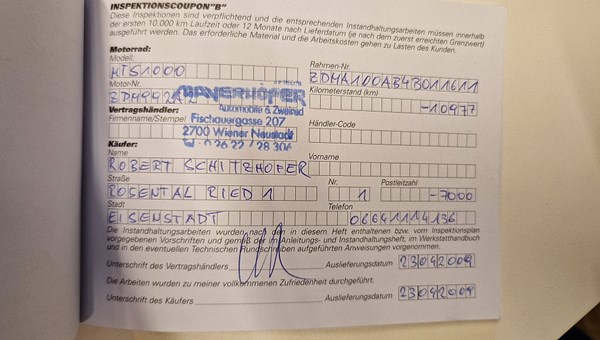 INSPEKTIONSCOUPON "B"
Diese Inspektionen sind verpflichtend und die entsprechenden Instandhaltungsarbeiten müssen innerhalb
der ersten 10.000 km Laufzeit oder 12 Monate nach Lieferdatum (je nach dem zuerst erreichten Grenzwert)
ausgeführt werden. Das erforderliche Material und die Arbeitskosten gehen zu Lasten des Kunden.
Motorrad:
Modell: Rahmen-Nr.
MTS1000 ZDMA100AB4B011611
Motor-Nr. Kilometerstand (km)
ZDM992A2 -10977
MAYERHOFER
Automobile & Zweirad
Vertragshändler:
Firmenname/Stempel Händler-Code
Fischauergasse 207
2700 Wiener Neustadt
02622 / 28 306
Käufer:
Name Vorname
ROBERT SCHITZHOFER
Straße Nr. Postleitzahl
ROSENTAL RIED 1 1 -7000
Stadt Telefon
EISENSTADT 06641114136
Die Instandhaltungsarbeiten wurden nach den in diesem Heft enthaltenen bzw. vom Inspektionsplan
vorgegebenen Vorschriften und gemäß der im Anleitungs- und Instandhaltungsheft, im Werkstatthandbuch
und in den eventuellen Technischen Rundschreiben aufgeführten Anweisungen vorgenommen.
Unterschrift des Vertragshändlers Auslieferungsdatum 23042009
Die Arbeiten wurden zu meiner vollkommenen Zufriedenheit durchgeführt.
Unterschrift des Käufers Auslieferungsdatum 23042009